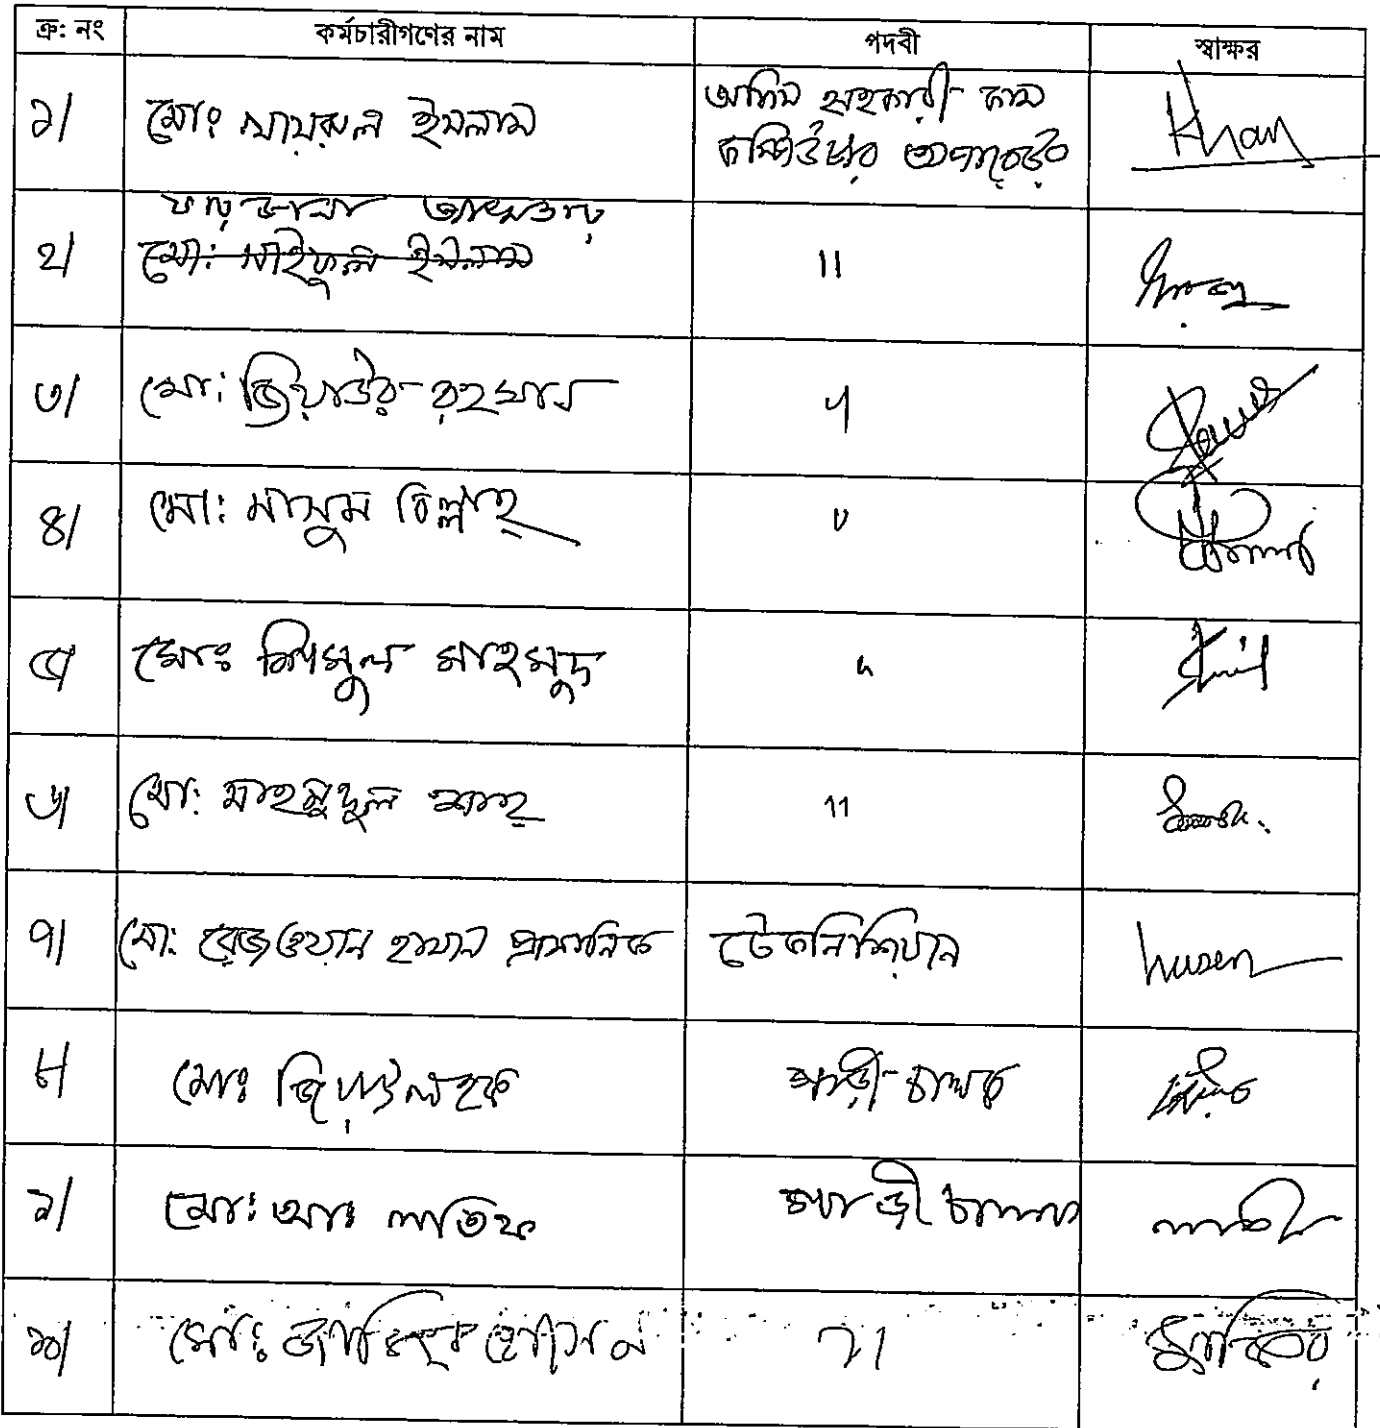 ক্র: নং কর্মচারীগণের নাম পদবী স্বাক্ষর
১/ মোঃ খায়রুল ইসলাম অফিস সহকারী কাম
কম্পিউটার অপারেটর Khan
ফারজানা আখতার
২/ মো: সাইফুল ইসলাম 11
৩/ মো: জিয়াউর রহমান 4
৪/ মো: মাসুম বিল্লাহ্ ''
৫/ মোঃ শিমুল মাহমুদ "
৬/ মো: মাহমুদুল শাহ্ 11
৭/ মো: রেজওয়ান হাসান প্রামানিক টেকনিশিয়ান
৮/ মোঃ জিয়াউল হক গাড়ী চালক
৯/ মো: আঃ লতিফ গাড়ী চালক
১০/ মোঃ জাকির হোসেন ''